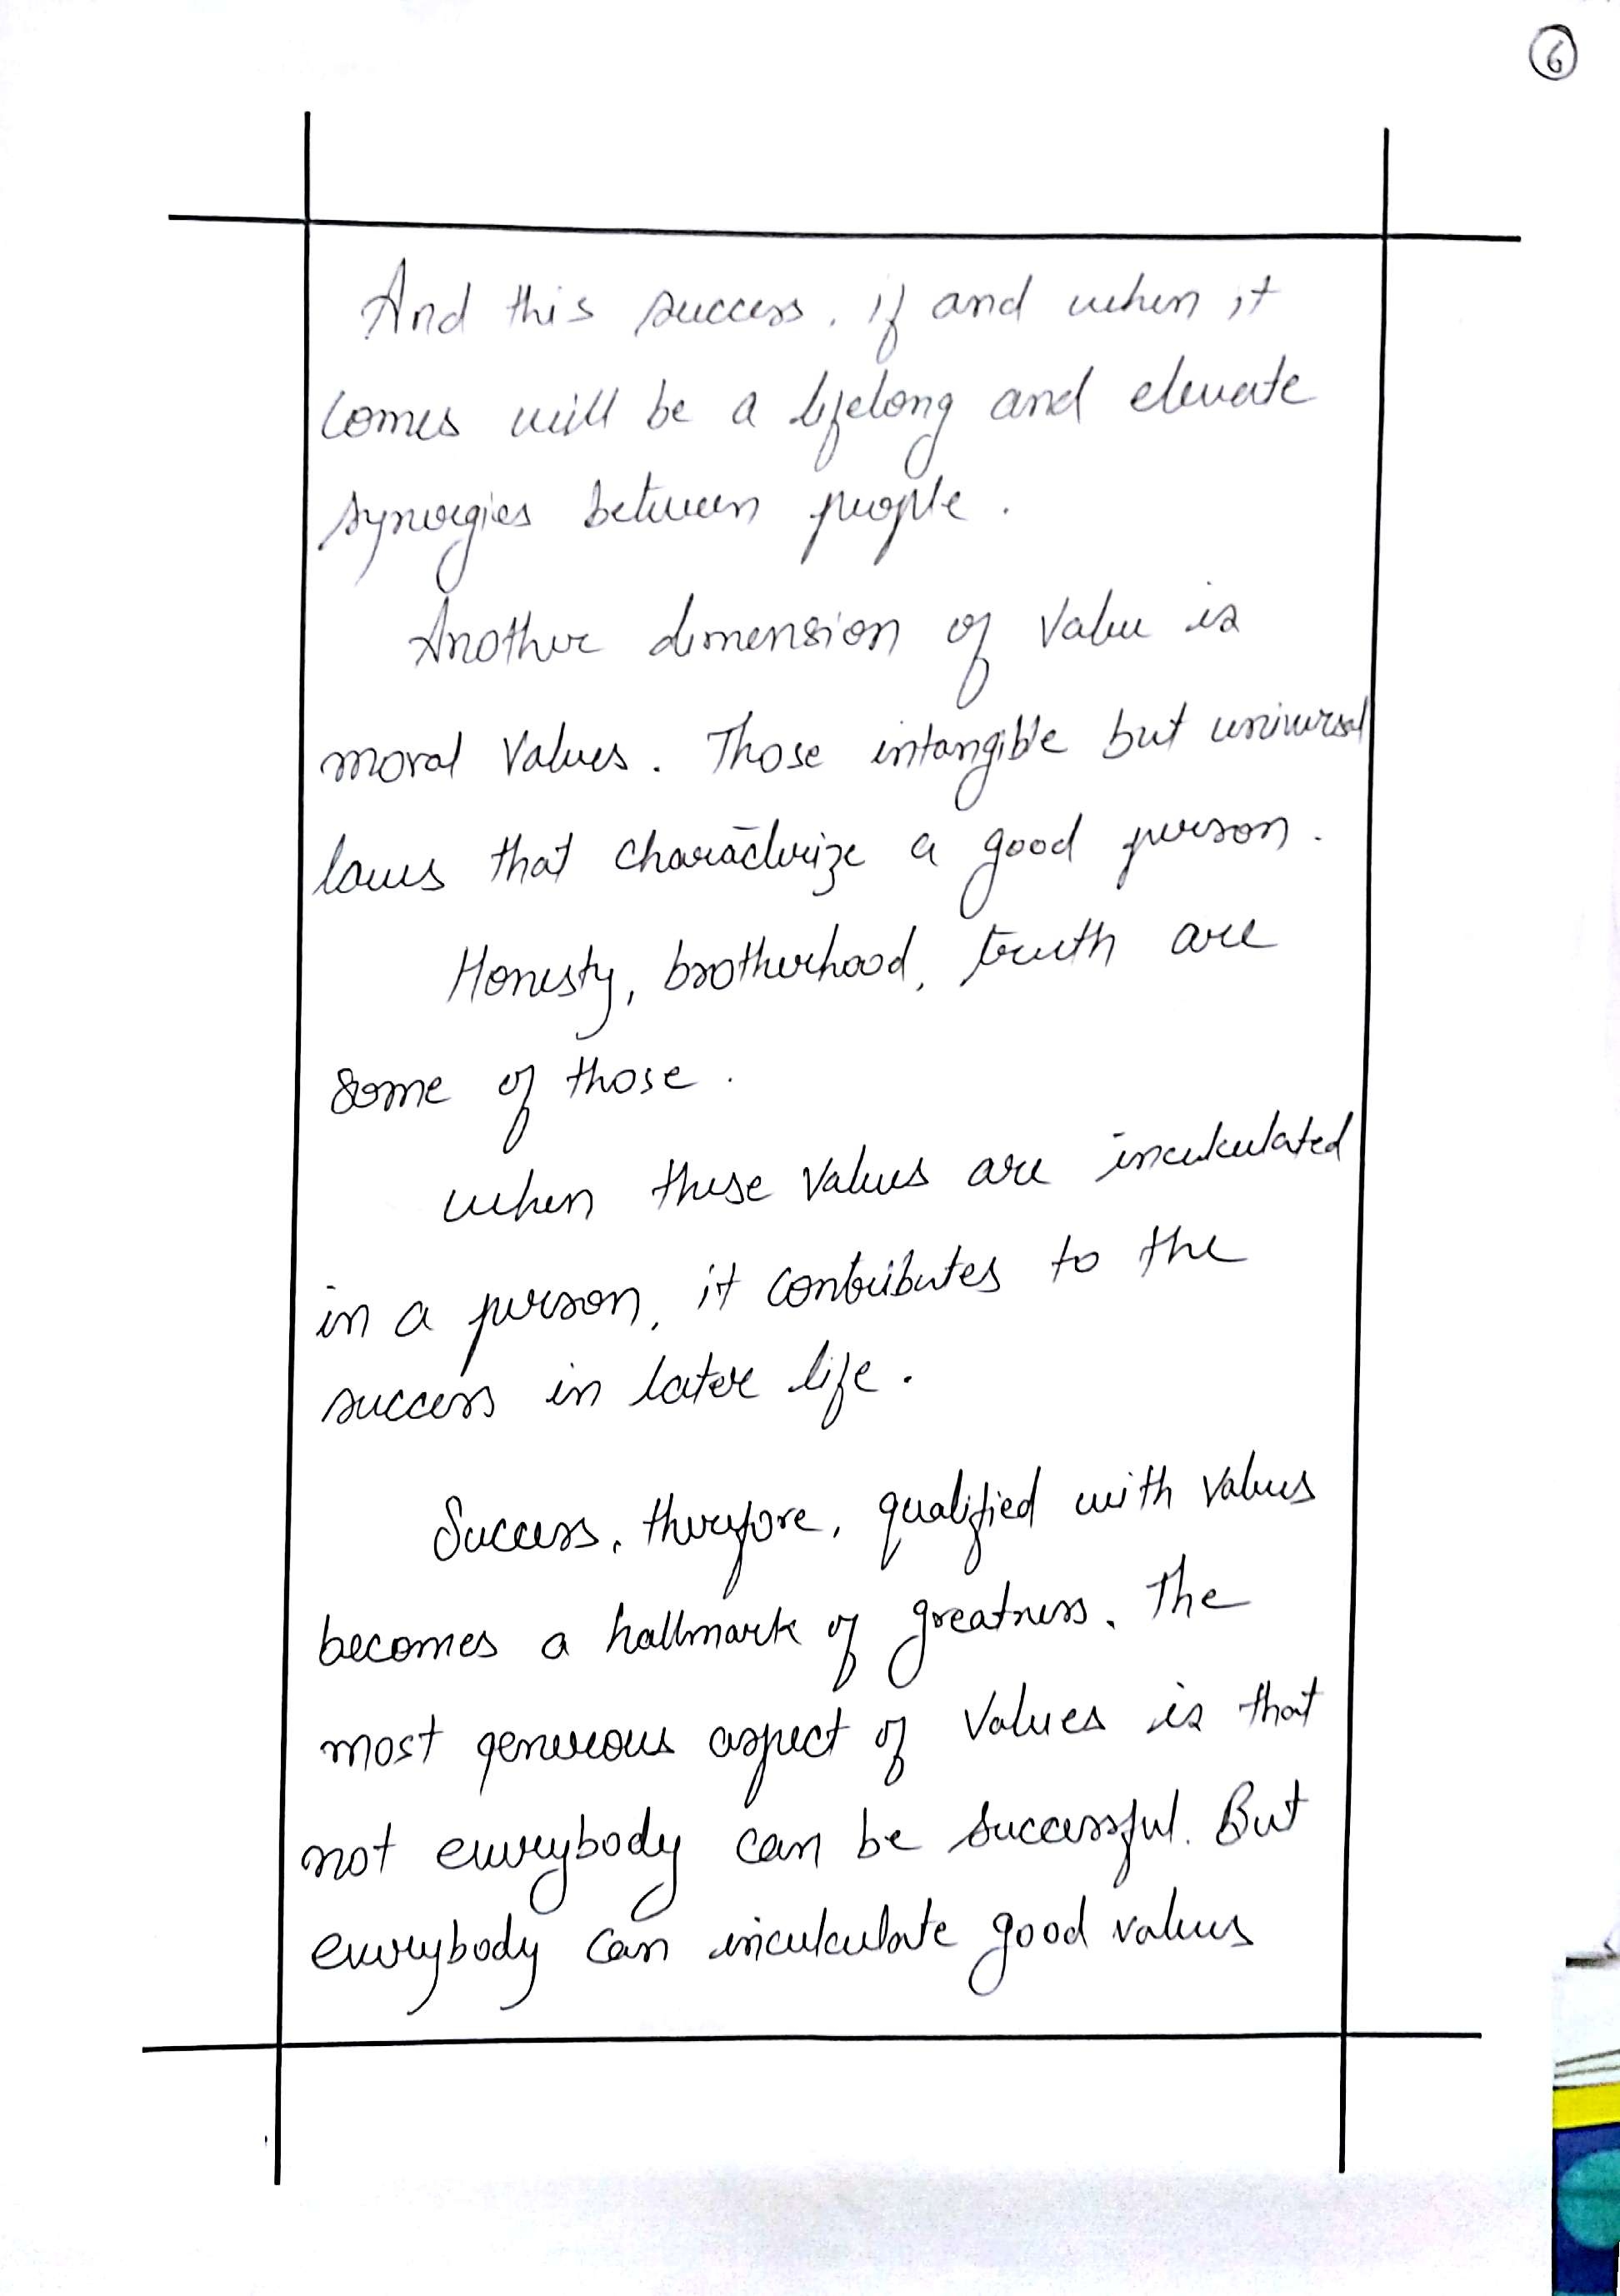 6
And this success, if and when it
comes will be a lifelong and elevate
synergies between people.
Another dimension of value is
moral values. Those intangible but universal
laws that characterize a good person.
Honesty, brotherhood, truth are
some of those.
when these values are inculculated
in a person, it contributes to the
success in later life.
Success, therefore, qualified with values
becomes a hallmark of greatness. The
most generous aspect of values is that
not everybody can be successful. But
everybody can inculculate good values